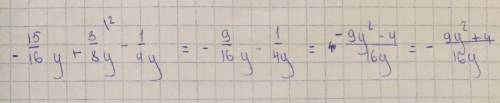 - 15/16 y + 3/8 y \2 - 1/4y = - 9/16 y - 1/4y = (-9y² - 4)/16y = - (9y² + 4)/16y